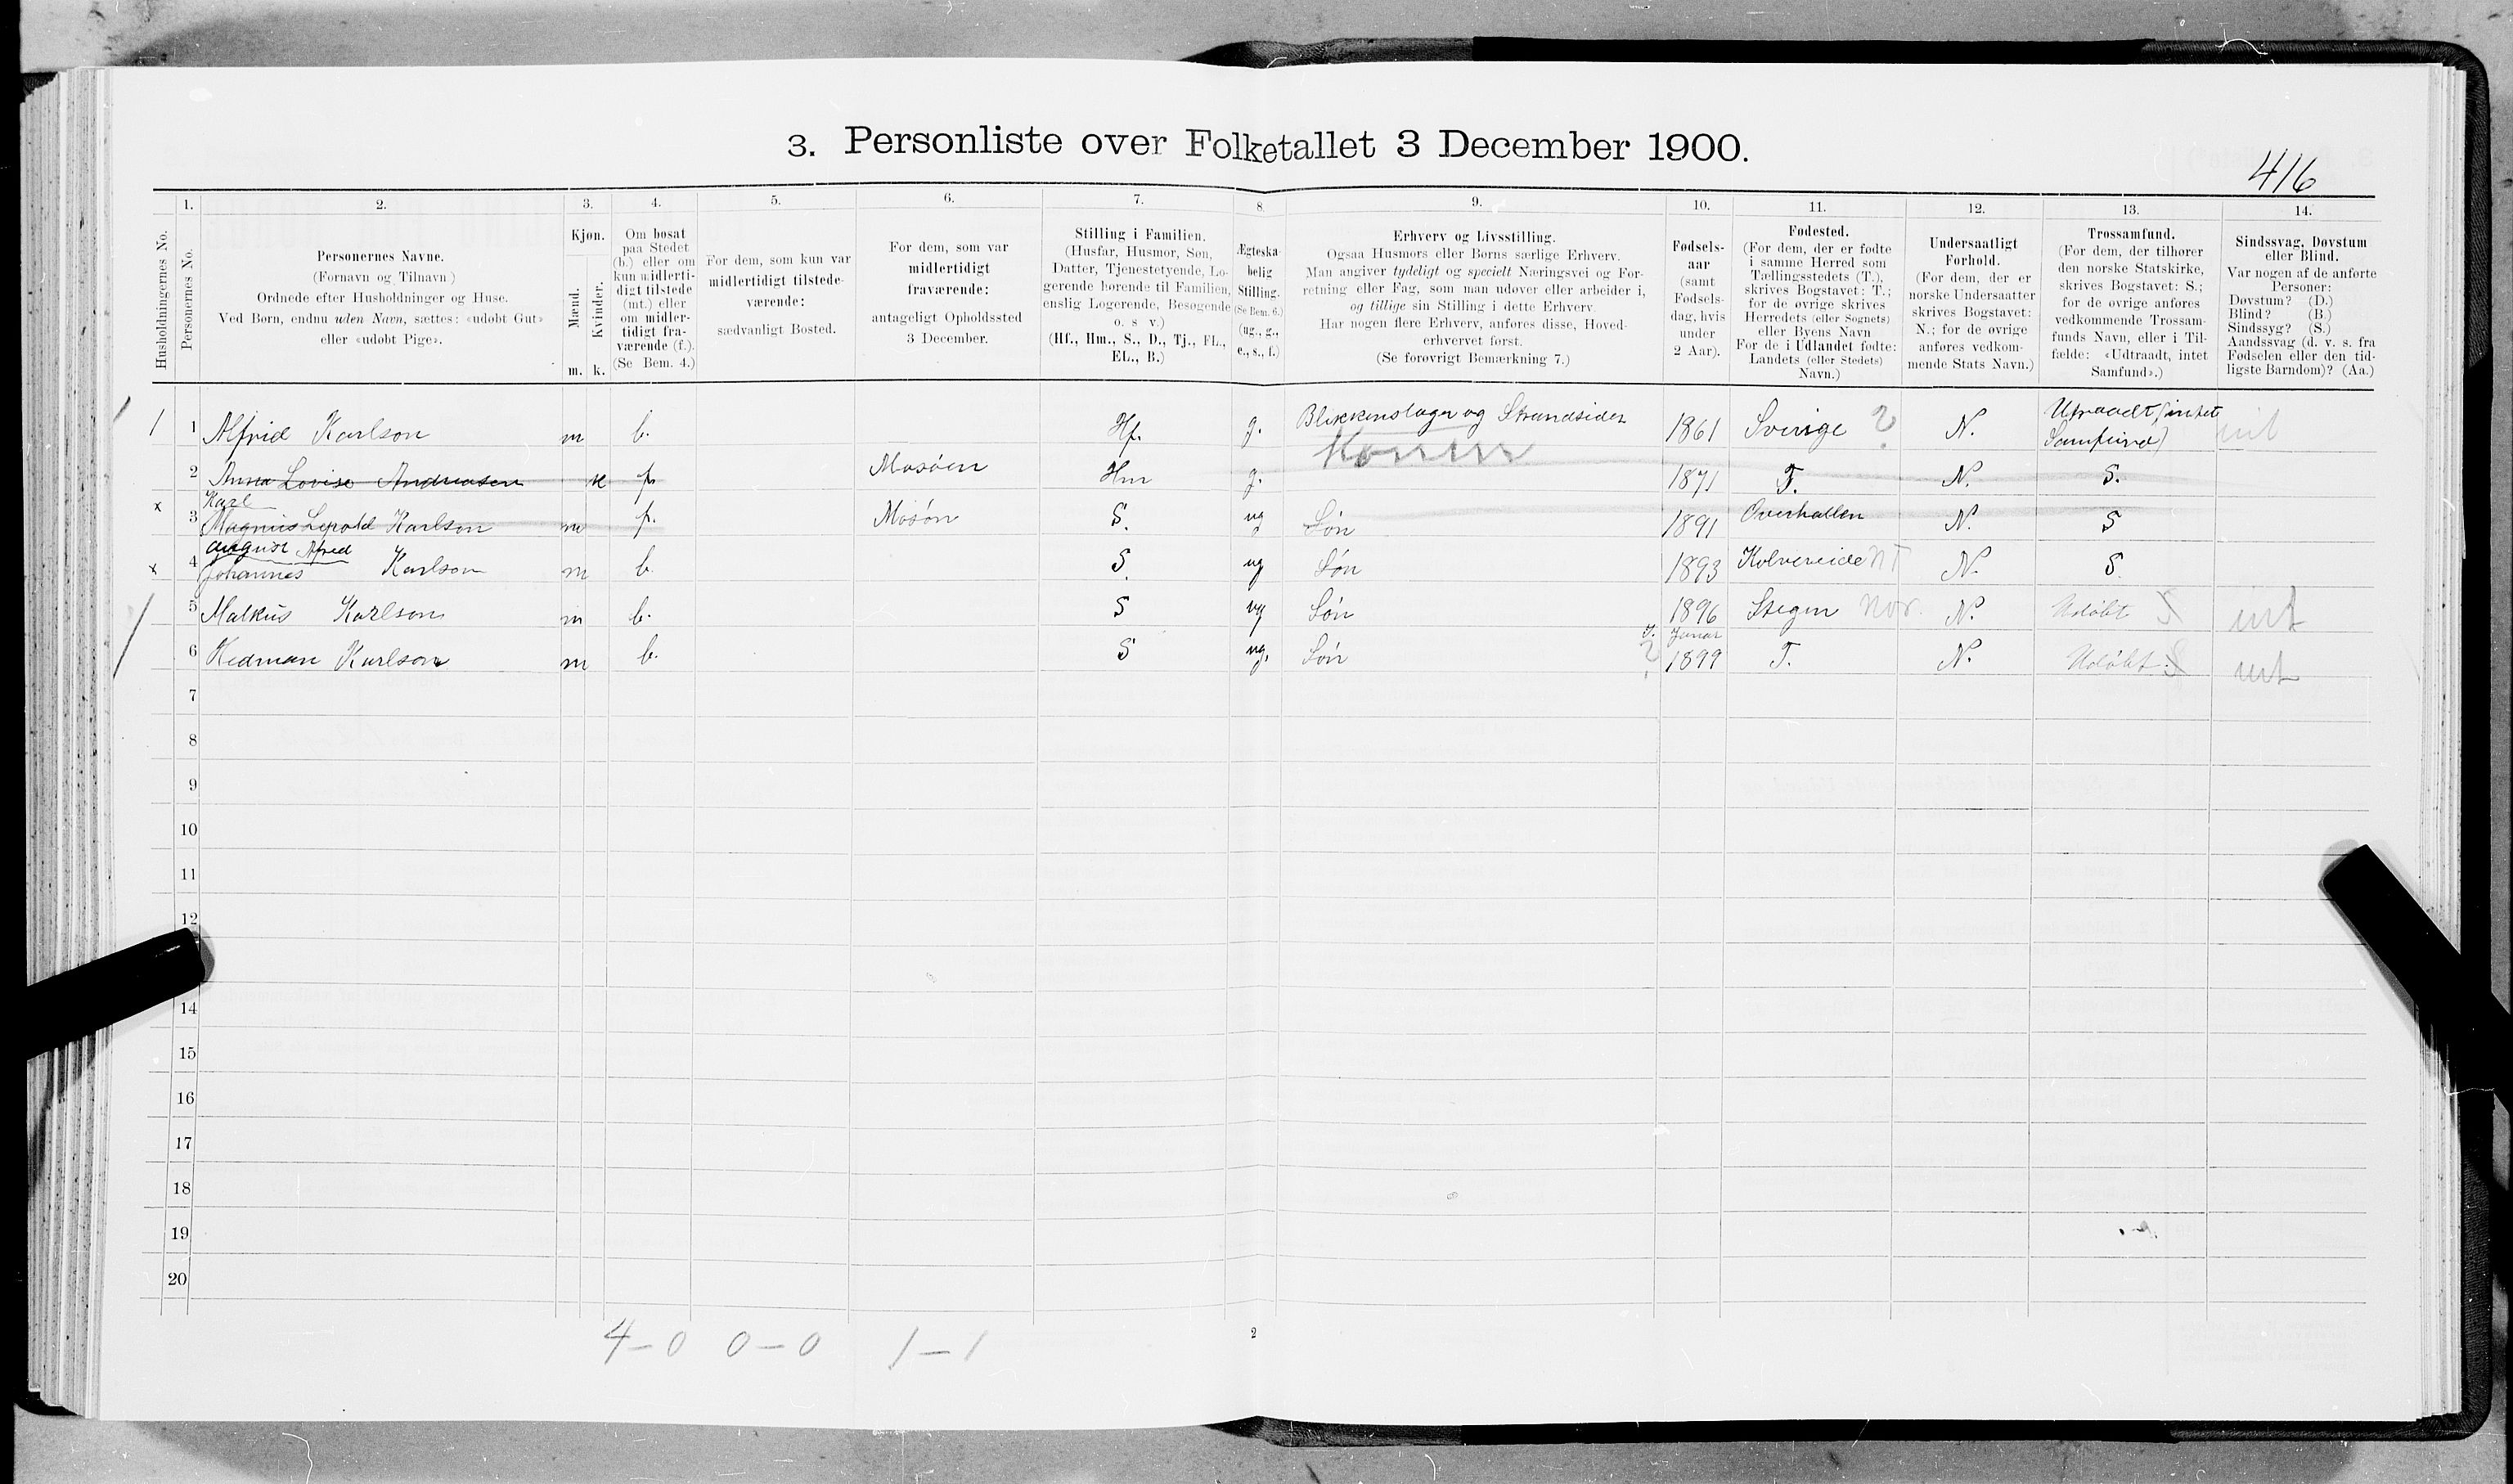 3. Personliste over Folketallet 3 December 1900.
416
Husholdningernes No.
1.
Personernes No.
2.
Personernes Navne.
(Fornavn og Tilnavn)
Ordnede efter Husholdninger og Huse.
Ved Børn, endnu uden Navn, sættes: «udøbt Gut»
eller «udøbt Pige».
3.
Kjøn.
Mænd.
Kvinder.
m. k.
4.
Om bosat
paa Stedet
(b.) eller om
kun midlerti-
digt tilstede
(mt.) eller
om midler-
tidigt fra-
værende (f.).
(Se Bem. 4.)
5.
For dem, som kun var
midlertidigt tilstede-
værende:
sædvanligt Bosted.
6.
For dem, som var
midlertidigt
fraværende:
antageligt Opholdssted
3 December.
7.
Stilling i Familien.
(Husfar, Husmor, Søn,
Datter, Tjenestetyende, Lo-
gerende hørende til Familien,
enslig Logerende, Besøgende
o. s v.)
(Hf., Hm., S., D., Tj., FL.,
EL., B.)
8.
Ægteska-
belig
Stilling.
(Se Bem. 6.)
(ug., g.,
e., s., f.)
9.
Erhverv og Livsstilling.
Ogsaa Husmors eller Børns særlige Erhverv.
Man angiver tydeligt og specielt Næringsvei og For-
retning eller Fag, som man udøver eller arbeider i,
og tillige sin Stilling i dette Erhverv.
Har nogen flere Erhverv, anføres disse, Hoved-
erhvervet først.
(Se forøvrigt Bemærkning 7.)
10.
Fødsels-
aar
(samt
Fødsels-
dag, hvis
under
2 Aar).
11.
Fødested.
(For dem, der er fødte
i samme Herred som
Tællingsstedets (T.),
skrives Bogstavet: T.;
for de øvrige skrives
Herredets (eller Sognets)
eller Byens Navn
For de i Udlandet fødte:
Landets (eller Stedets)
Navn.)
12.
Undersaatligt
Forhold.
(For dem, der er
norske Undersaatter
skrives Bogstavet:
N.; for de øvrige
anføres vedkom-
mende Stats Navn.)
13.
Trossamfund.
(For dem, der tilhører
den norske Statskirke,
skrives Bogstavet: S.;
for de øvrige anføres
vedkommende Trossam-
funds Navn, eller i Til-
fælde: «Udtraadt, intet
Samfund».)
14.
Sindssvag, Døvstum
eller Blind.
Var nogen af de anførte
Personer:
Døvstum? (D.)
Blind? (B.)
Sindssyg? (S.)
Aandssvag (d. v. s. fra
Fødselen eller den tid-
ligste Barndom)? (Aa.)
1 1 Alfrid Karlson m b. Hf. g. Blikkenslager og Strandsider 1861 Sverige ? N. Utraadt (intet
Samfund) int
Konen
2 Anna Lovise Andreasen k f. Mosøen Hm g. 1871 T. N. S.
Karl
x 3 Magnus Lepold Karlson m f. Mosøn S. ug Søn 1891 Overhallen N. S
August Afred
x 4 Johannes Karlson m b. S ug Søn 1893 Kolvereide NT N. S.
5 Malkus Karlson m b. S ug Søn 1896 Stegen Nor. N. Udøbt S int
9. Januar
6 Hedman Karlson m b. S ug. Søn ? 1899 T. N. Udøbt. S int
7
8
9
10
11
12
14
15
16
17
18
19
20
4 – 0 0 – 0 1 – 1
2